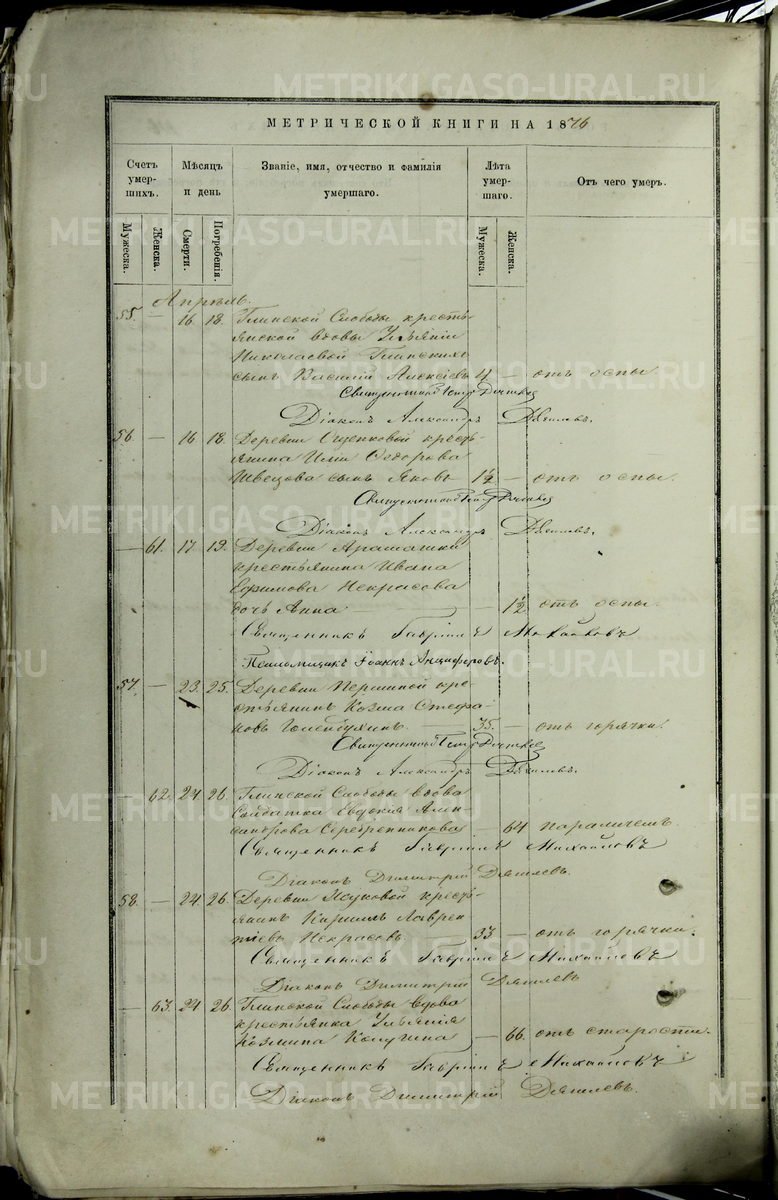 METRIKI.GASO-URAL.RU
МЕТРИЧЕСКОЙ КНИГИ НА 1876
Счетъ умер- шихъ. Мѣсяцъ и день Званіе, имя, отчество и фамилія умершаго. Лѣта умер- шаго. Отъ чего умеръ.
Мужеска. Женска. Смерти. Погребенія. Мужеска. Женска.
Апрѣль.
55. — 16 18. Глинской Слободы кресть-
янской вдовы Ульяніи
Николаевой Глинскихъ
сынъ Василій Алексѣевъ 4 — отъ оспы
Священникъ Петръ
Діаконъ Александръ
56 — 16 18. Деревни Ощепковой кресть-
янина
Швецова сынъ Яковъ 1½ — отъ оспы.
Священникъ Петръ
Діаконъ Александръ
— 61. 17. 19. Деревни Арамашки
крестьянина Ивана
Ефимова Некрасова
дочь Анна — 1½ отъ оспы.
Священникъ Гавріилъ Михайловъ
Псаломщикъ Іоаннъ Анциферовъ.
57. — 23. 25. Деревни Першиной кре-
стьянинъ Козма Стефа-
новъ Голендухинъ 35. — отъ горячки.
Священникъ Петръ
Діаконъ Александръ
— 62. 24 26. Глинской Слободы вдова
Солдатка Евдокія Алек-
сандрова Серебренникова — 64 параличемъ.
Священникъ Гавріилъ Михайловъ
Діаконъ Димитрій Дягилевъ.
58. — 24. 26. Деревни кресть-
янинъ Кириллъ Лаврен-
тіевъ Некрасовъ. 33 — отъ горячки.
Священникъ Гавріилъ Михайловъ
Діаконъ Димитрій Дягилевъ
— 63. 24 26. Глинской Слободы вдова
крестьянка Ульянія
Козмина — 66. отъ старости.
Священникъ Гавріилъ Михайловъ
Діаконъ Димитрій Дягилевъ.